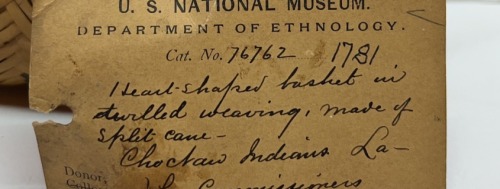 U. S. NATIONAL MUSEUM.
DEPARTMENT OF ETHNOLOGY.
Cat. No. 76762 1781
Heart-shaped basket in
twilled weaving, made of
split cane-
Choctaw Indians La-
Donor,
Commissioners